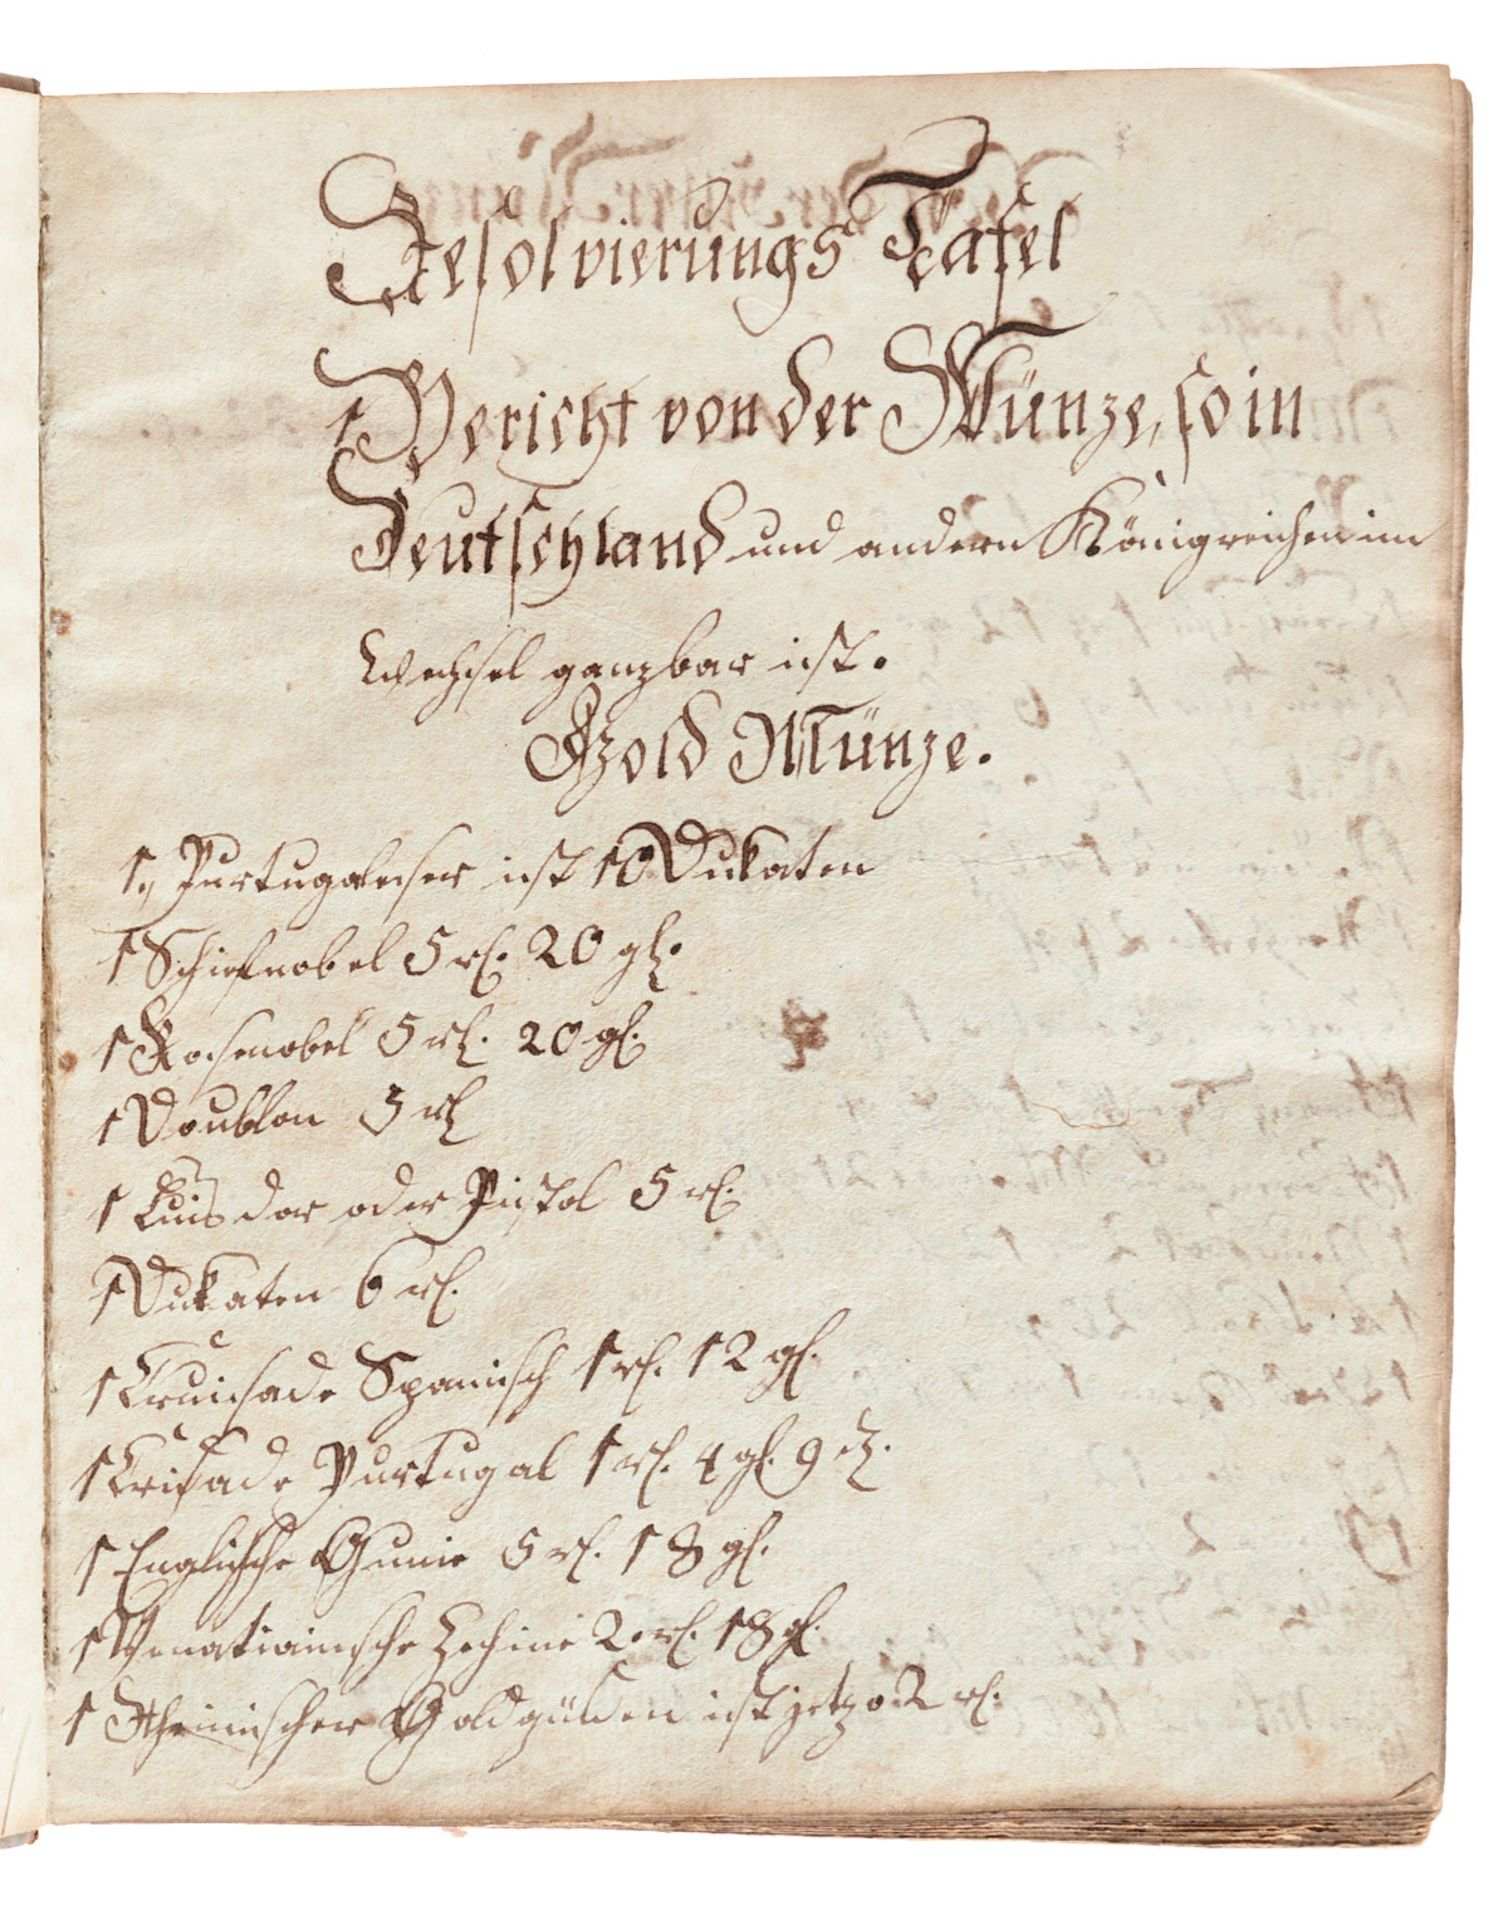 Resolvierungs Tafel
Bericht von der Münze, so in
Teutschland und andern Königreichen im
Wechsel ganzbar ist.
Gold Münze.
1., Purtugaleser ist 10 Dukaten
1 Schiefnobel 5 rl. 20 gl.
1 Rosenobel 5 rl. 20 gl.
1 Doublon 5 rl
1 Luis dor oder Pistol 5 rl.
1 Dukaten 6 rl.
1 Cruisade Spanisch 1 rl. 12 gl.
1 Crisade Purtugal 1 rl. 4 gl. 9 d.
1 Englische Gunie 5 rl. 18 gl.
1 Venatianische Zechine 2 rl. 18 gl.
1 Rheinischer Goldgülden ist jetzo 2 rl.